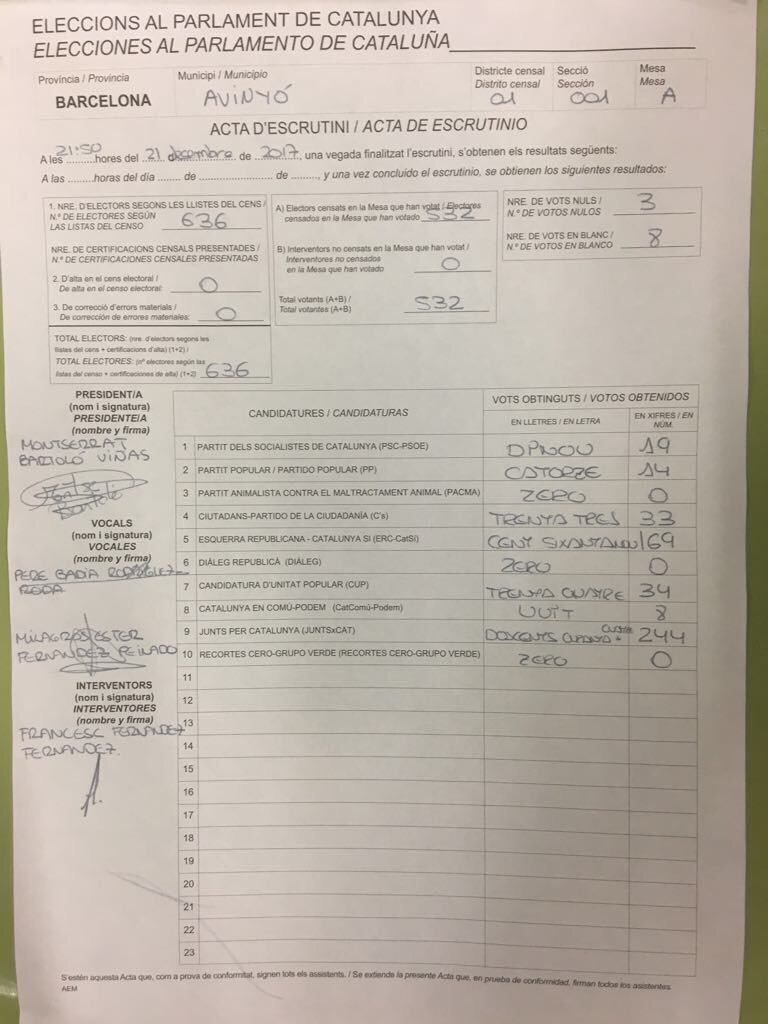 ELECCIONS AL PARLAMENT DE CATALUNYA
ELECCIONES AL PARLAMENTO DE CATALUÑA
Província / Provincia
BARCELONA
Municipi / Municipio
AVINYÓ
Districte censal
Distrito censal
01
Secció
Sección
001
Mesa
Mesa
A
ACTA D'ESCRUTINI / ACTA DE ESCRUTINIO
A les 21:50 hores del 21 de desembre de 2017, una vegada finalitzat l'escrutini, s'obtenen els resultats següents:
A las ......... horas del día ....... de .................... de ........., y una vez concluido el escrutinio, se obtienen los siguientes resultados:
1. NRE. D'ELECTORS SEGONS LES LLISTES DEL CENS /
N.º DE ELECTORES SEGÚN
LAS LISTAS DEL CENSO 636
NRE. DE CERTIFICACIONS CENSALS PRESENTADES /
N.º DE CERTIFICACIONES CENSALES PRESENTADAS
2. D'alta en el cens electoral /
De alta en el censo electoral: 0
3. De correcció d'errors materials /
De corrección de errores materiales: 0
TOTAL ELECTORS: (nre. d'electors segons les
llistes del cens + certificacions d'alta) (1+2) /
TOTAL ELECTORES: (nº electores según las
listas del censo + certificaciones de alta) (1+2) 636
A) Electors censats en la Mesa que han votat / Electores
censados en la Mesa que han votado 532
B) Interventors no censats en la Mesa que han votat /
Interventores no censados
en la Mesa que han votado 0
Total votants (A+B) /
Total votantes (A+B) 532
NRE. DE VOTS NULS /
N.º DE VOTOS NULOS 3
NRE. DE VOTS EN BLANC /
N.º DE VOTOS EN BLANCO 8
PRESIDENT/A
(nom i signatura)
PRESIDENTE/A
(nombre y firma)
MONTSERRAT
BARTOLÓ VIÑAS
VOCALS
(nom i signatura)
VOCALES
(nombre y firma)
PERE BADIA RODRÍGUEZ-
RODA
MILAGROS ESTER
FERNANDEZ PEINADO
INTERVENTORS
(nom i signatura)
INTERVENTORES
(nombre y firma)
FRANCESC FERNANDEZ
FERNANDEZ.
CANDIDATURES / CANDIDATURAS
VOTS OBTINGUTS / VOTOS OBTENIDOS
EN LLETRES / EN LETRA
EN XIFRES / EN
NÚM.
1 PARTIT DELS SOCIALISTES DE CATALUNYA (PSC-PSOE) DINOU 19
2 PARTIT POPULAR / PARTIDO POPULAR (PP) CATORZE 14
3 PARTIT ANIMALISTA CONTRA EL MALTRACTAMENT ANIMAL (PACMA) ZERO 0
4 CIUTADANS-PARTIDO DE LA CIUDADANÍA (C's) TRENTA TRES 33
5 ESQUERRA REPUBLICANA - CATALUNYA SI (ERC-CatSí) CENT SIXANTANOU 169
6 DIÀLEG REPUBLICÀ (DIÀLEG) ZERO 0
7 CANDIDATURA D'UNITAT POPULAR (CUP) TRENTA QUATRE 34
8 CATALUNYA EN COMÚ-PODEM (CatComú-Podem) VUIT 8
9 JUNTS PER CATALUNYA (JUNTSxCAT) 244
10 RECORTES CERO-GRUPO VERDE (RECORTES CERO-GRUPO VERDE) ZERO 0
11
12
13
14
15
16
17
18
19
20
21
22
23
S'estén aquesta Acta que, com a prova de conformitat, signen tots els assistents. / Se extiende la presente Acta que, en prueba de conformidad, firman todos los asistentes.
AEM